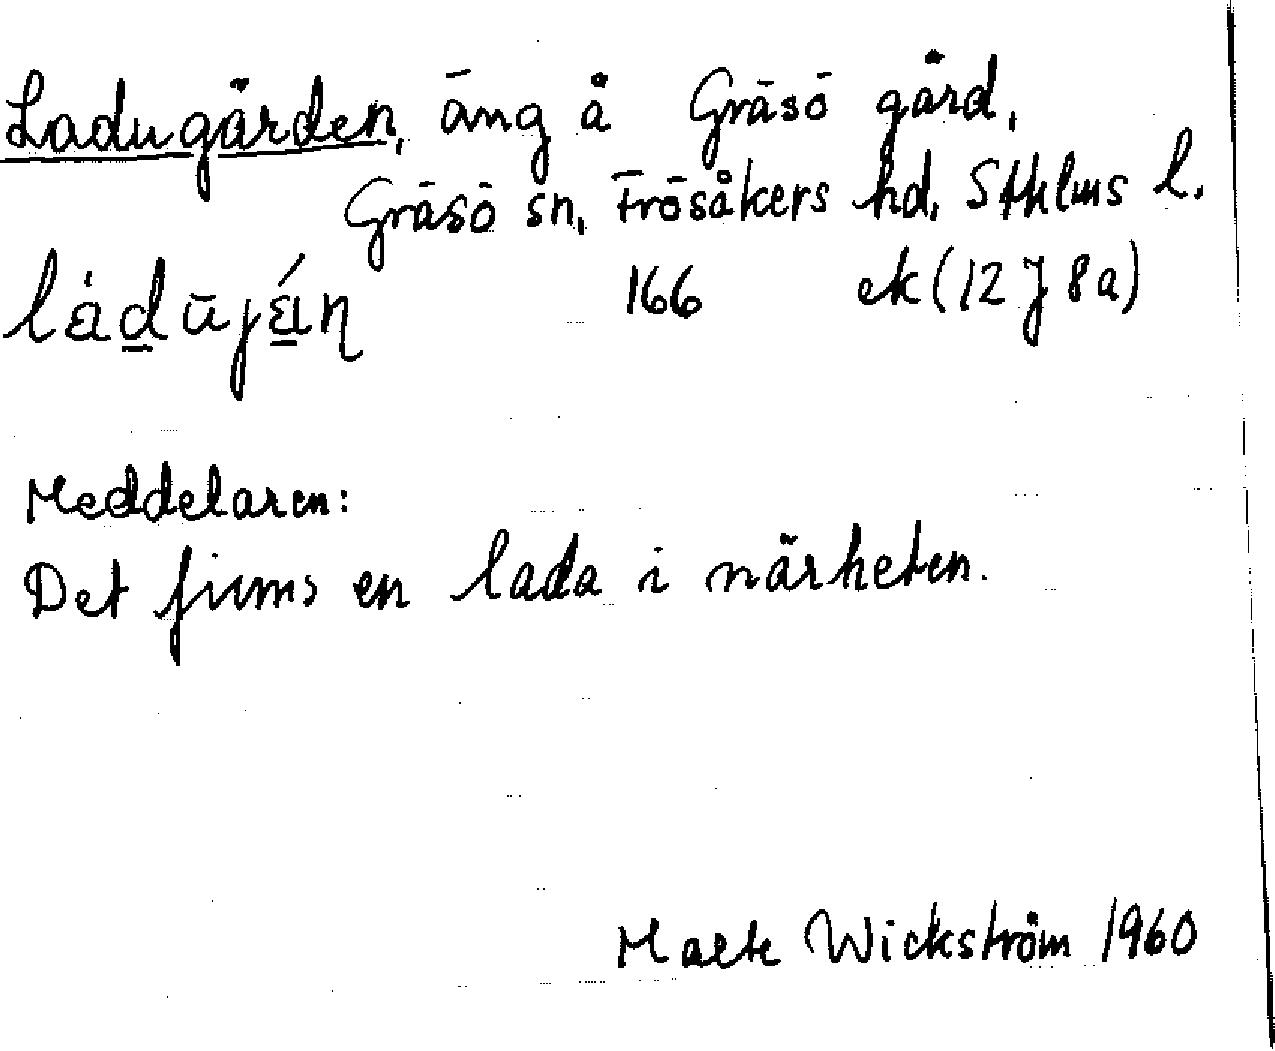 Ladugärden, äng å Gräsö gård,
Gräsö sn, Frösåkers hd, Sthlms l.
166 ek (12 J 8a)
Meddelaren:
Det finns en lada i närheten.
Malte Wickström 1960